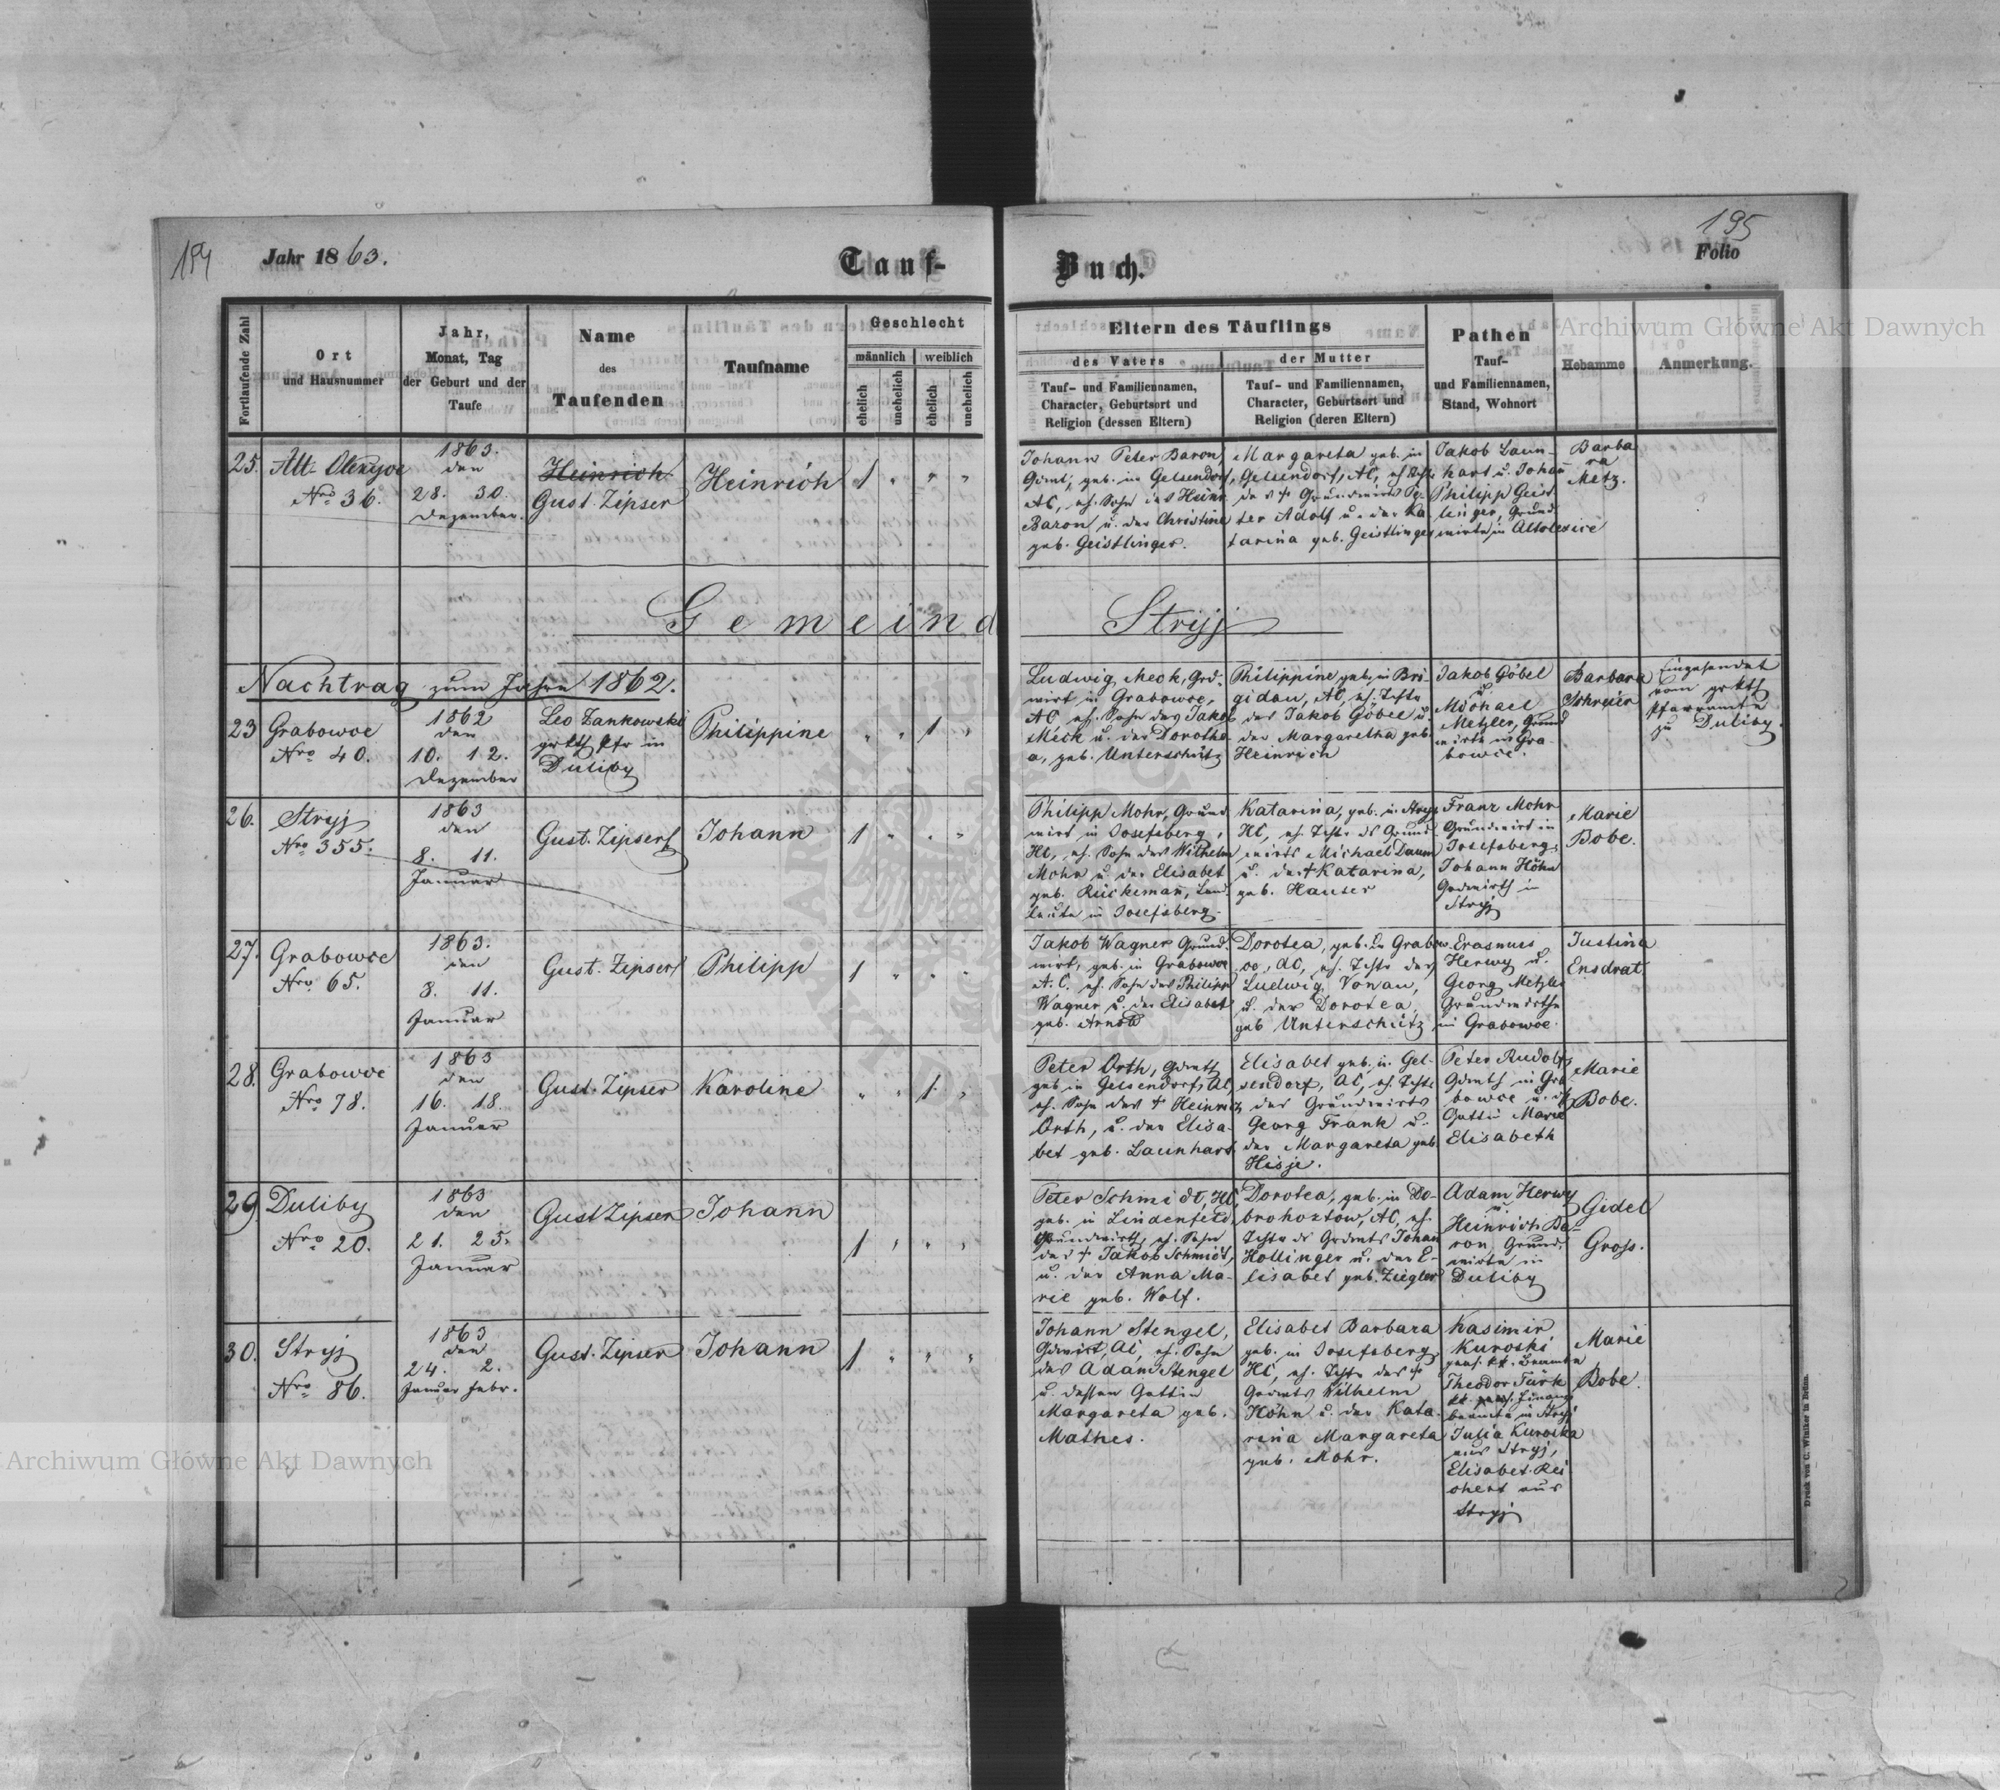 194
Jahr 1863.
Tauf-
Buch.
195
Folio
Fortlaufende Zahl
Ort
und Hausnummer
Jahr,
Monat, Tag
der Geburt und der
Taufe
Name
des
Taufenden
Taufname
Geschlecht
männlich
weiblich
ehelich
unehelich
ehelich
unehelich
Eltern des Täuflings
des Vaters
Tauf- und Familiennamen,
Character, Geburtsort und
Religion (dessen Eltern)
der Mutter
Tauf- und Familiennamen,
Character, Geburtsort und
Religion (deren Eltern)
Pathen
Tauf-
und Familiennamen,
Stand, Wohnort
Hebamme
Anmerkung.
25.
Alt
Nro 36.
1863.
den
28. 30.
Dezember.
Heinrich
Gust. Zipser
Heinrich
1 " " "
Johann Peter Baron,
Gdwt, geb. in Gelsendorf,
AC, eh. Sohn des Heinr.
Baron u. der Christine
geb. Geistlinger.
Margareta geb. in
Gelsendorf, AC, eh. Tcht.
des † Grundwirts Pe-
ter Adolf u. der Ka-
tarina geb. Geistlinger
Jakob Laun-
hart u. Johann
Philipp Geist
linger, Grund
wirte in Altolexice
Barba
ra
Metz.
Gemeind
Stryj
Nachtrag zum Jahre 1862.
23
Grabowce
Nro 40.
1862
den
10. 12.
Dezember
Leo Zankowski
grkth Pfr in
Duliby
Philippine
" " 1 "
Ludwig Meck, Grd-
wirt in Grabowce,
AC eh. Sohn des Jakob
Meck u. der Dorothe
a, geb. Unterschütz
Philippine geb. in Bri-
gidau, AC, eh. Tchtr
des Jakob Göbel u.
der Margaretha geb.
Heinrich
Jakob Göbel
u.
Michael
Metzler, Grund
wirte in Gra-
bowce.
Barbara
Schreier
Eingesendet
vom grkth
Pfarramte
zu Duliby.
26.
Stryj
Nro 355.
1863
den
8. 11.
Januar
Gust. Zipser
Johann
1 " " "
Philipp Mohr, Grund
wirt in Josefsberg,
HC, eh. Sohn des Wilhelm
Mohr u. der Elisabet
geb. Rückemañ, Land-
leute in Josefsberg.
Katarina, geb. in Stryj
HC, eh. Tchtr ds Grund-
wirts Michael Daum
u. der † Katarina,
geb. Hauser
Franz Mohr
Grundwirt in
Josefsberg,
Johann Höhn
Grdwirth in
Stryj
Marie
Bobe.
27.
Grabowce
Nro 65.
1863.
den
8. 11.
Januar
Gust. Zipser
Philipp
1 " " "
Jakob Wagner Grund-
wirt, geb. in Grabowce
A.C. eh. Sohn des Philipp
Wagner u. der Elisabet
geb. Arnold
Dorotea, geb. in Grabow
ce, AC, eh. Tchtr des
Ludwig Vonau,
u. der Dorotea,
geb Unterschütz
Erasmus
Herwy u.
Georg Metzler
Grundwirthe
in Grabowce.
Justina
Ensdrat.
28.
Grabowce
Nro 78.
1863
den
16. 18.
Januar
Gust. Zipser
Karoline
" " 1 "
Peter Orth, Gdwrth
geb in Gelsendorf, AC,
eh. Sohn des † Heinrich
Orth, u. der Elisa-
bet geb. Launhart
Elisabet geb. in Gel-
sendorf, AC, eh. Tchtr
des Grundwirts
Georg Frank u.
der Margareta geb.
Hisje.
Peter Rudolf,
Gdwrth in Gra
bowce u.
Gattin Marie
Elisabeth
Marie
Bobe.
29.
Duliby
Nro 20.
1863
den
21. 25.
Januar
Gust Zipser
Johann
1 " " "
Peter Schmidt, HC,
geb. in Lindenfeld,
Grundwirth, eh. Sohn
des † Jakob Schmidt,
u. der Anna Ma-
rie geb. Wolf.
Dorotea, geb. in Do-
brohostow, AC, eh.
Tchtr ds Grdwrts Johan
Hollinger u. der E-
lisabet geb. Ziegler
Adam Herwy
u.
Heinrich Ba-
ron, Grund-
wirte in
Duliby
Gidel
Gross.
30.
Stryj
Nro 86.
1863
den
24. 2.
Januar Febr.
Gust. Zipser
Johann
1 " " "
Johann Stengel,
Gdwirt, AC, eh. Sohn
des Adam Stengel
u. dessen Gattin
Margareta geb.
Mathes.
Elisabet Barbara
geb. in Josefsberg,
HC, eh. Tchtr des †
Grdwrts Wilhelm
Höhn u. der Kata-
rina Margareta
geb. Mohr.
Kasimir
Kuroski
pens. kk. Beamte
Theodor Türk
kk. pens. Finanz
beamte in Stryj
Julia Kuroska
aus Stryj,
Elisabet Rei
chert aus
Stryj
Marie
Bobe.
Druck von C. Winiker in Brünn.
Archiwum Główne Akt Dawnych
Archiwum Główne Akt Dawnych